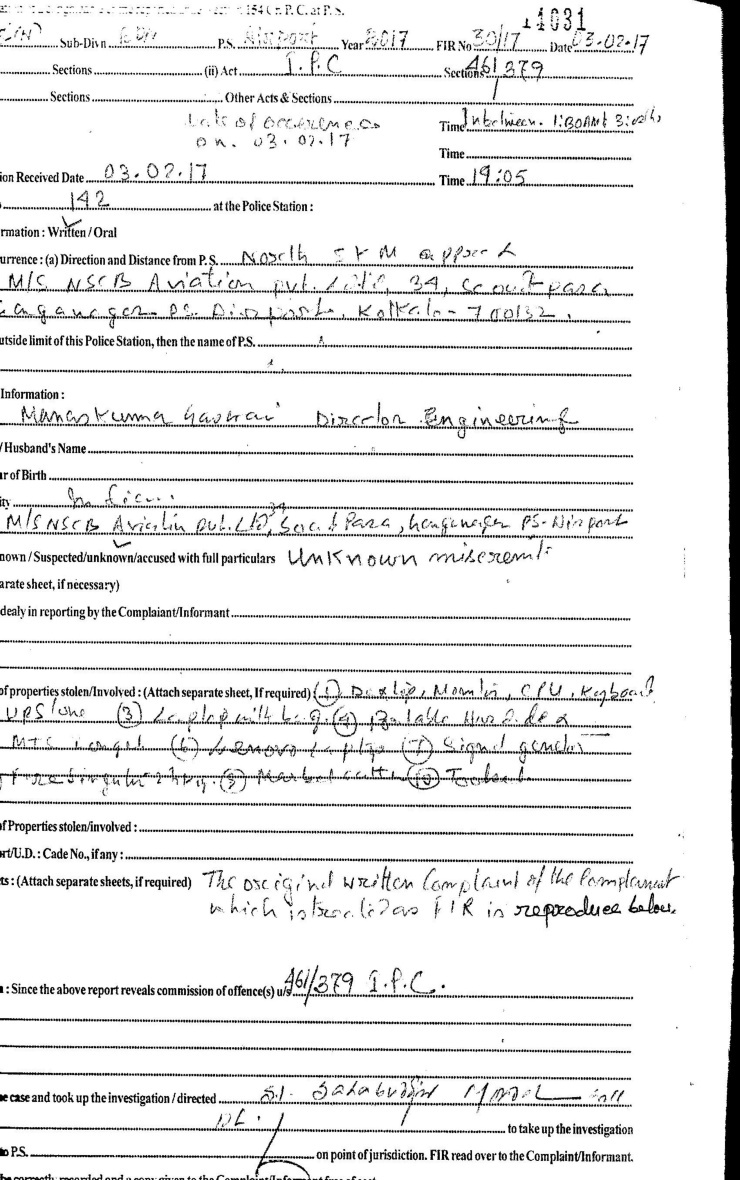 154 Cr. P.C. at P.S.
14031
Sub-Divn P.S. Airport Year 2017 FIR No 30/17 Date 03.02.17
Sections (ii) Act I.P.C Sections 461/379
Sections Other Acts & Sections
of occurrence
on. 03.02.17
Time Inbetween. 1:30AM &
Time
ion Received Date 03.02.17 Time 19:05
142 at the Police Station :
rmation : Written / Oral
urrence : (a) Direction and Distance from P.S. North
M/S NSCB Aviation pvt. Ltd, 34, Scout para,
P.S. Airport, Kolkata - 700132.
utside limit of this Police Station, then the name of P.S.
Information :
Manas Kumar Director Engineering
/ Husband's Name
r of Birth
ity Indian
M/S NSCB Aviation pvt. Ltd, 34 Scout Para, PS - Airport
nown / Suspected/unknown/accused with full particulars Unknown miscreant
arate sheet, if necessary)
dealy in reporting by the Complaiant/Informant
of properties stolen/Involved : (Attach separate sheet, If required) (1) Desktop, Monitor, CPU, Keyboard
UPS/one (3) Laptop with bag. (4) Portable Hard
MTS (6) Lenovo Laptop (7) Signal
(9) (10)
of Properties stolen/involved :
rt/U.D. : Cade No., if any :
ts : (Attach separate sheets, if required) The original written Complaint of the Complainant
which is treated as FIR is reproduce below.
: Since the above report reveals commission of offence(s) u/s 461/379 I.P.C.
e case and took up the investigation / directed S.I.
to take up the investigation
to P.S. on point of jurisdiction. FIR read over to the Complaint/Informant.
be correctly recorded and a copy given to the Complaint/Informant free of cost